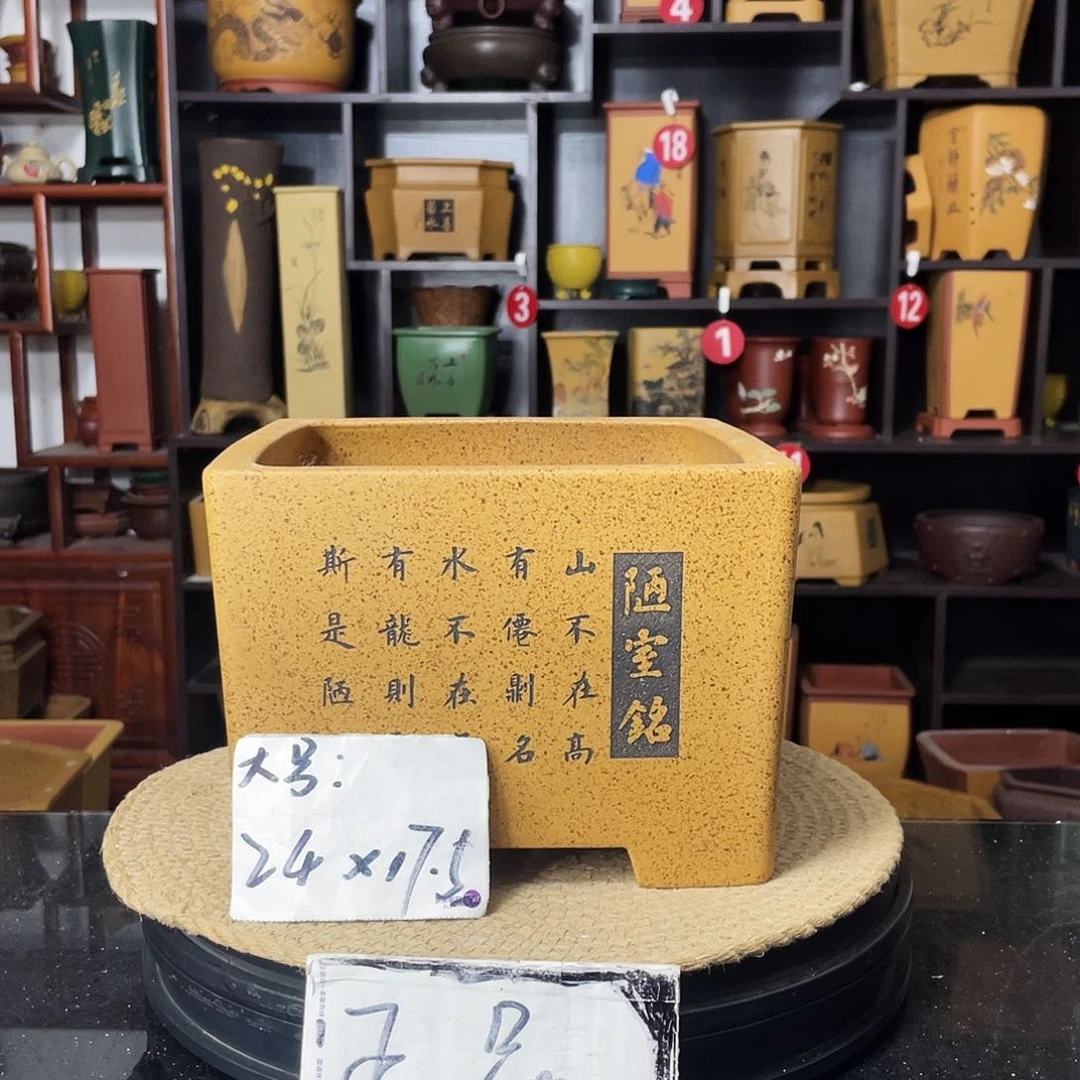 陋室銘
山不在高
有僊則名
水不在
有龍則
斯是陋
大号:
24×17.5
4
18
3
1
12